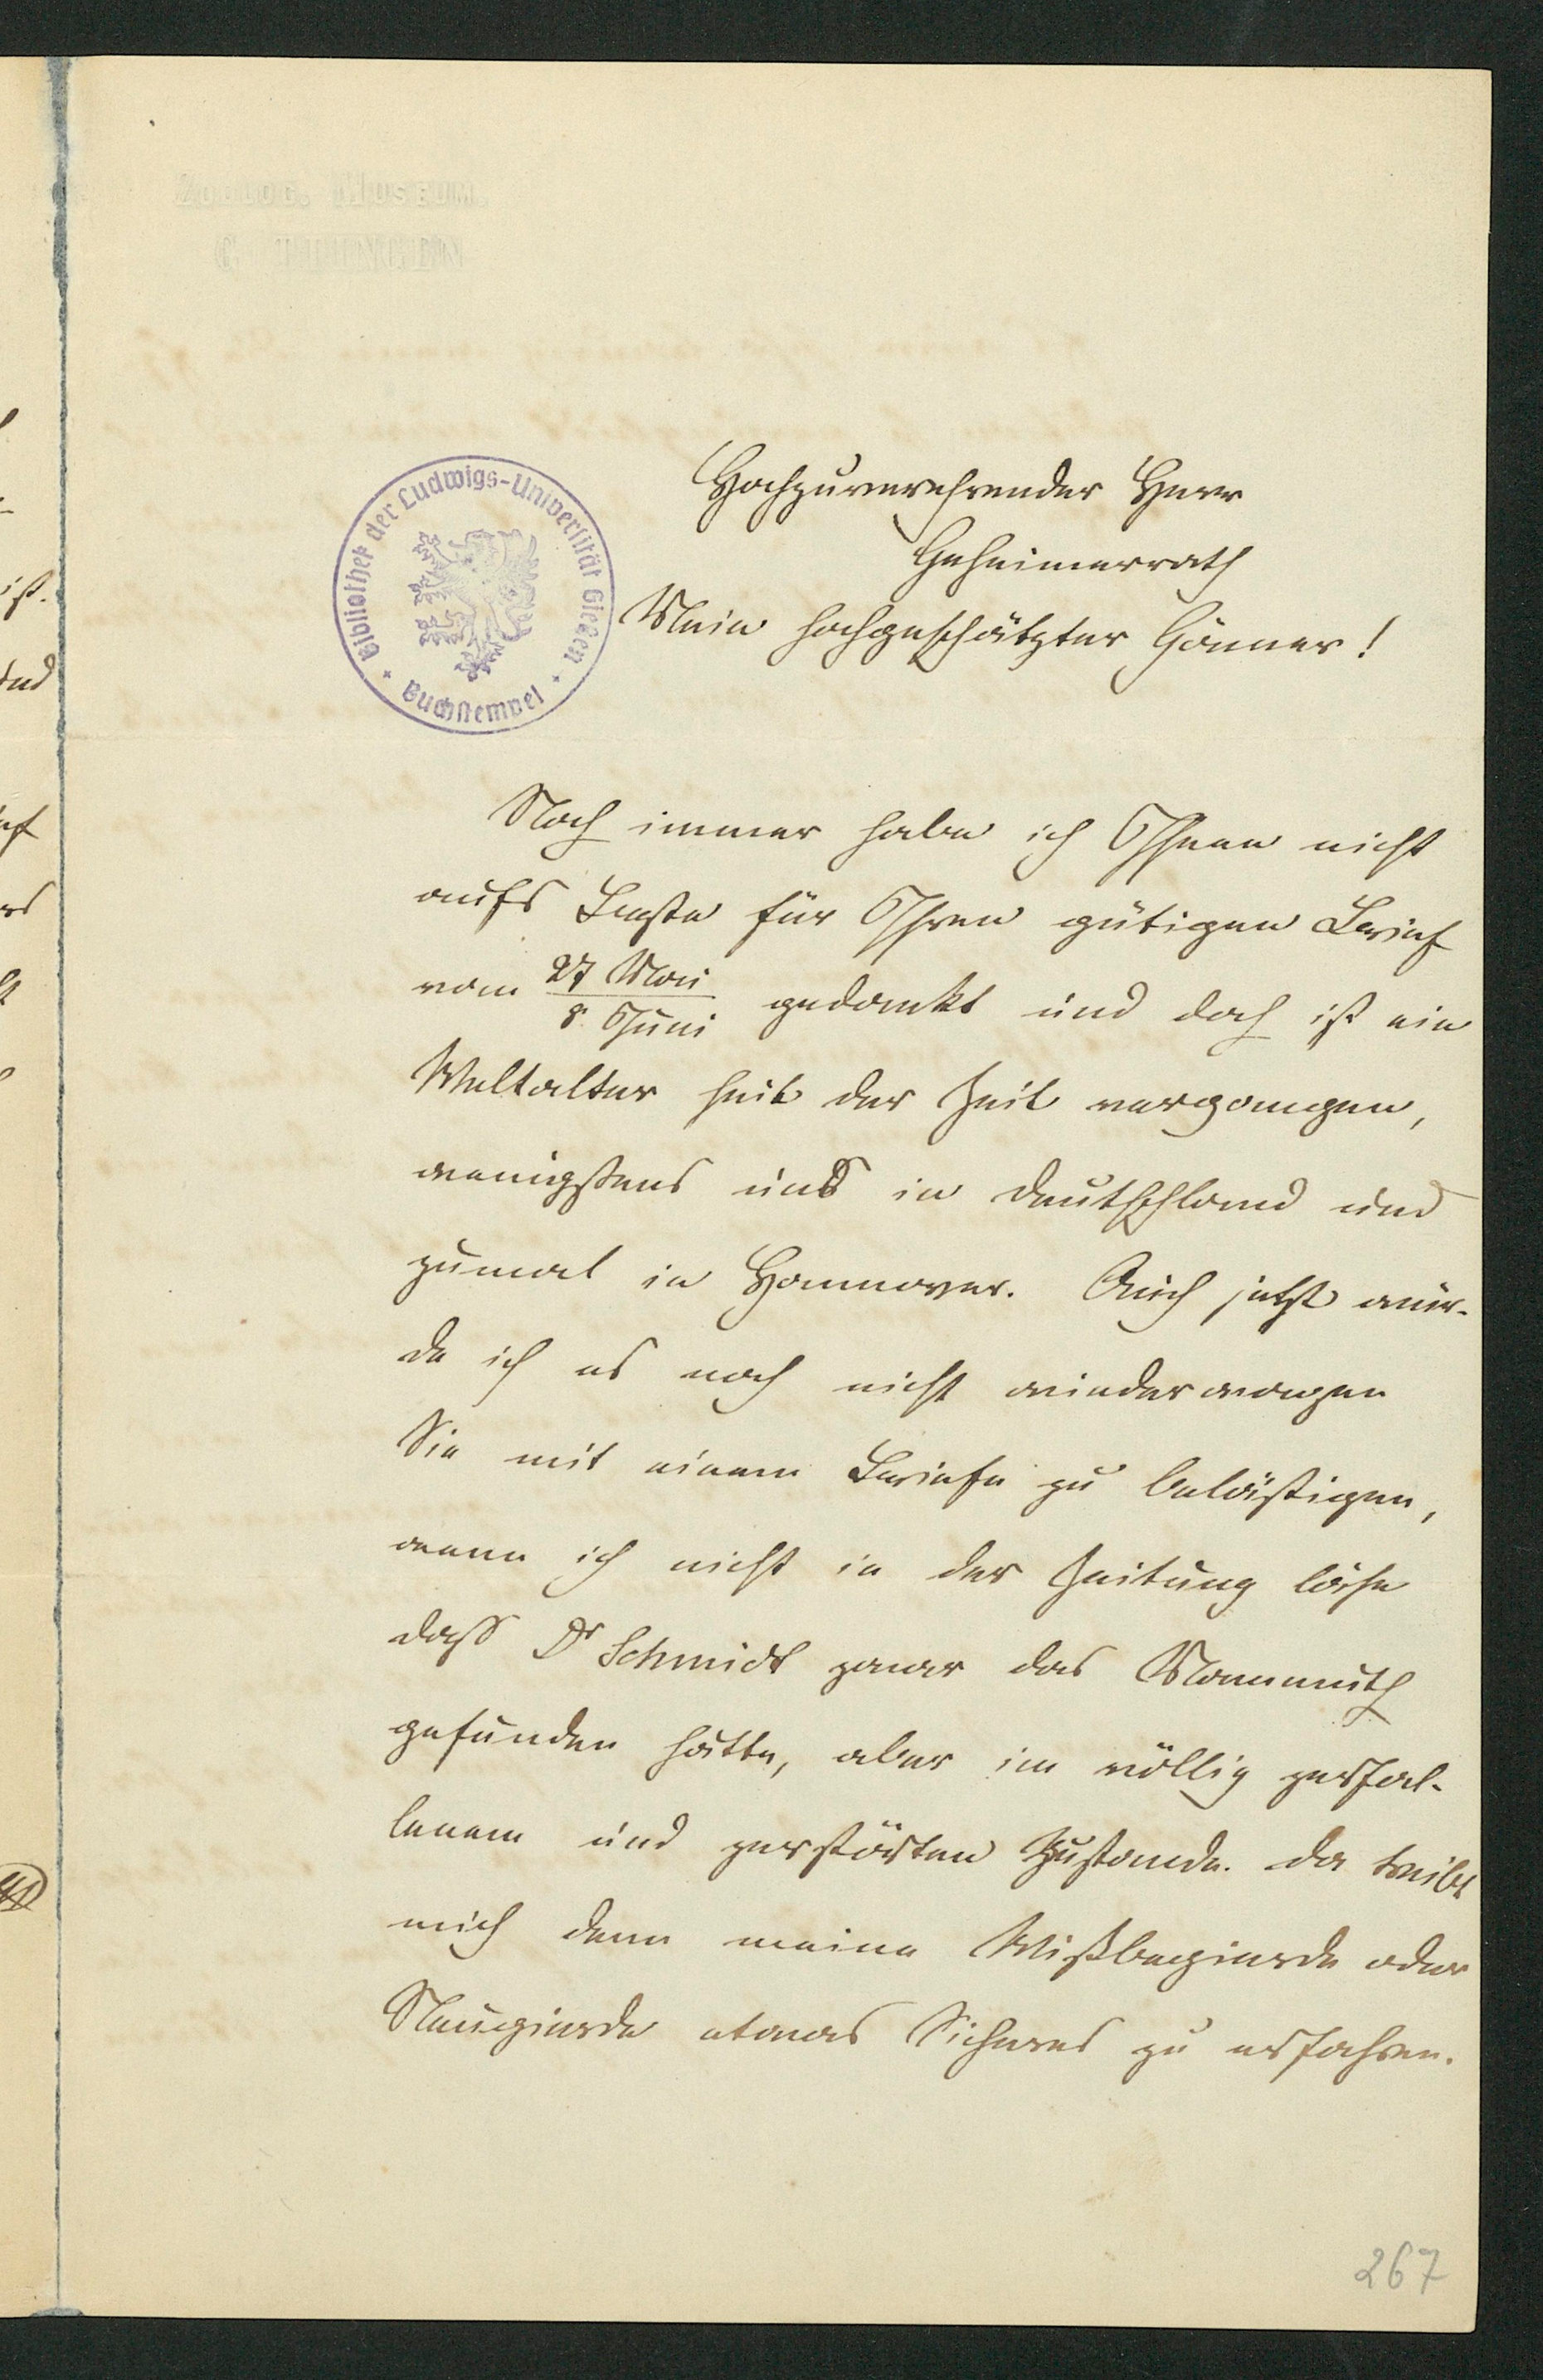 ZOOLOG. MUSEUM.
GÖTTINGEN
Bibliothek der Ludwigs-Universität Gießen
Buchstempel
Hochzuverehrender Herr
Geheimerrath
Mein hochgeschätzter Gönner!
Noch immer habe ich Ihnen nicht
aufs Beste für Ihren gütigen Brief
vom 27 Mai / 8. Juni gedankt und doch ist ein
Weltalter seit der Zeit vergangen,
wenigstens uns in Deutschland und
zumal in Hannover. Auch jetzt wür-
de ich es noch nicht wieder wagen
Sie mit einem Briefe zu belästigen,
wenn ich nicht in der Zeitung läse
dass Dr Schmidt zwar das Mammuth
gefunden hätte, aber im völlig zerfal-
lenem und zerstörten Zustande. Da treibt
mich denn meine Wißbegierde oder
Neugierde etwas Sicheres zu erfahren.
267
ist.
und